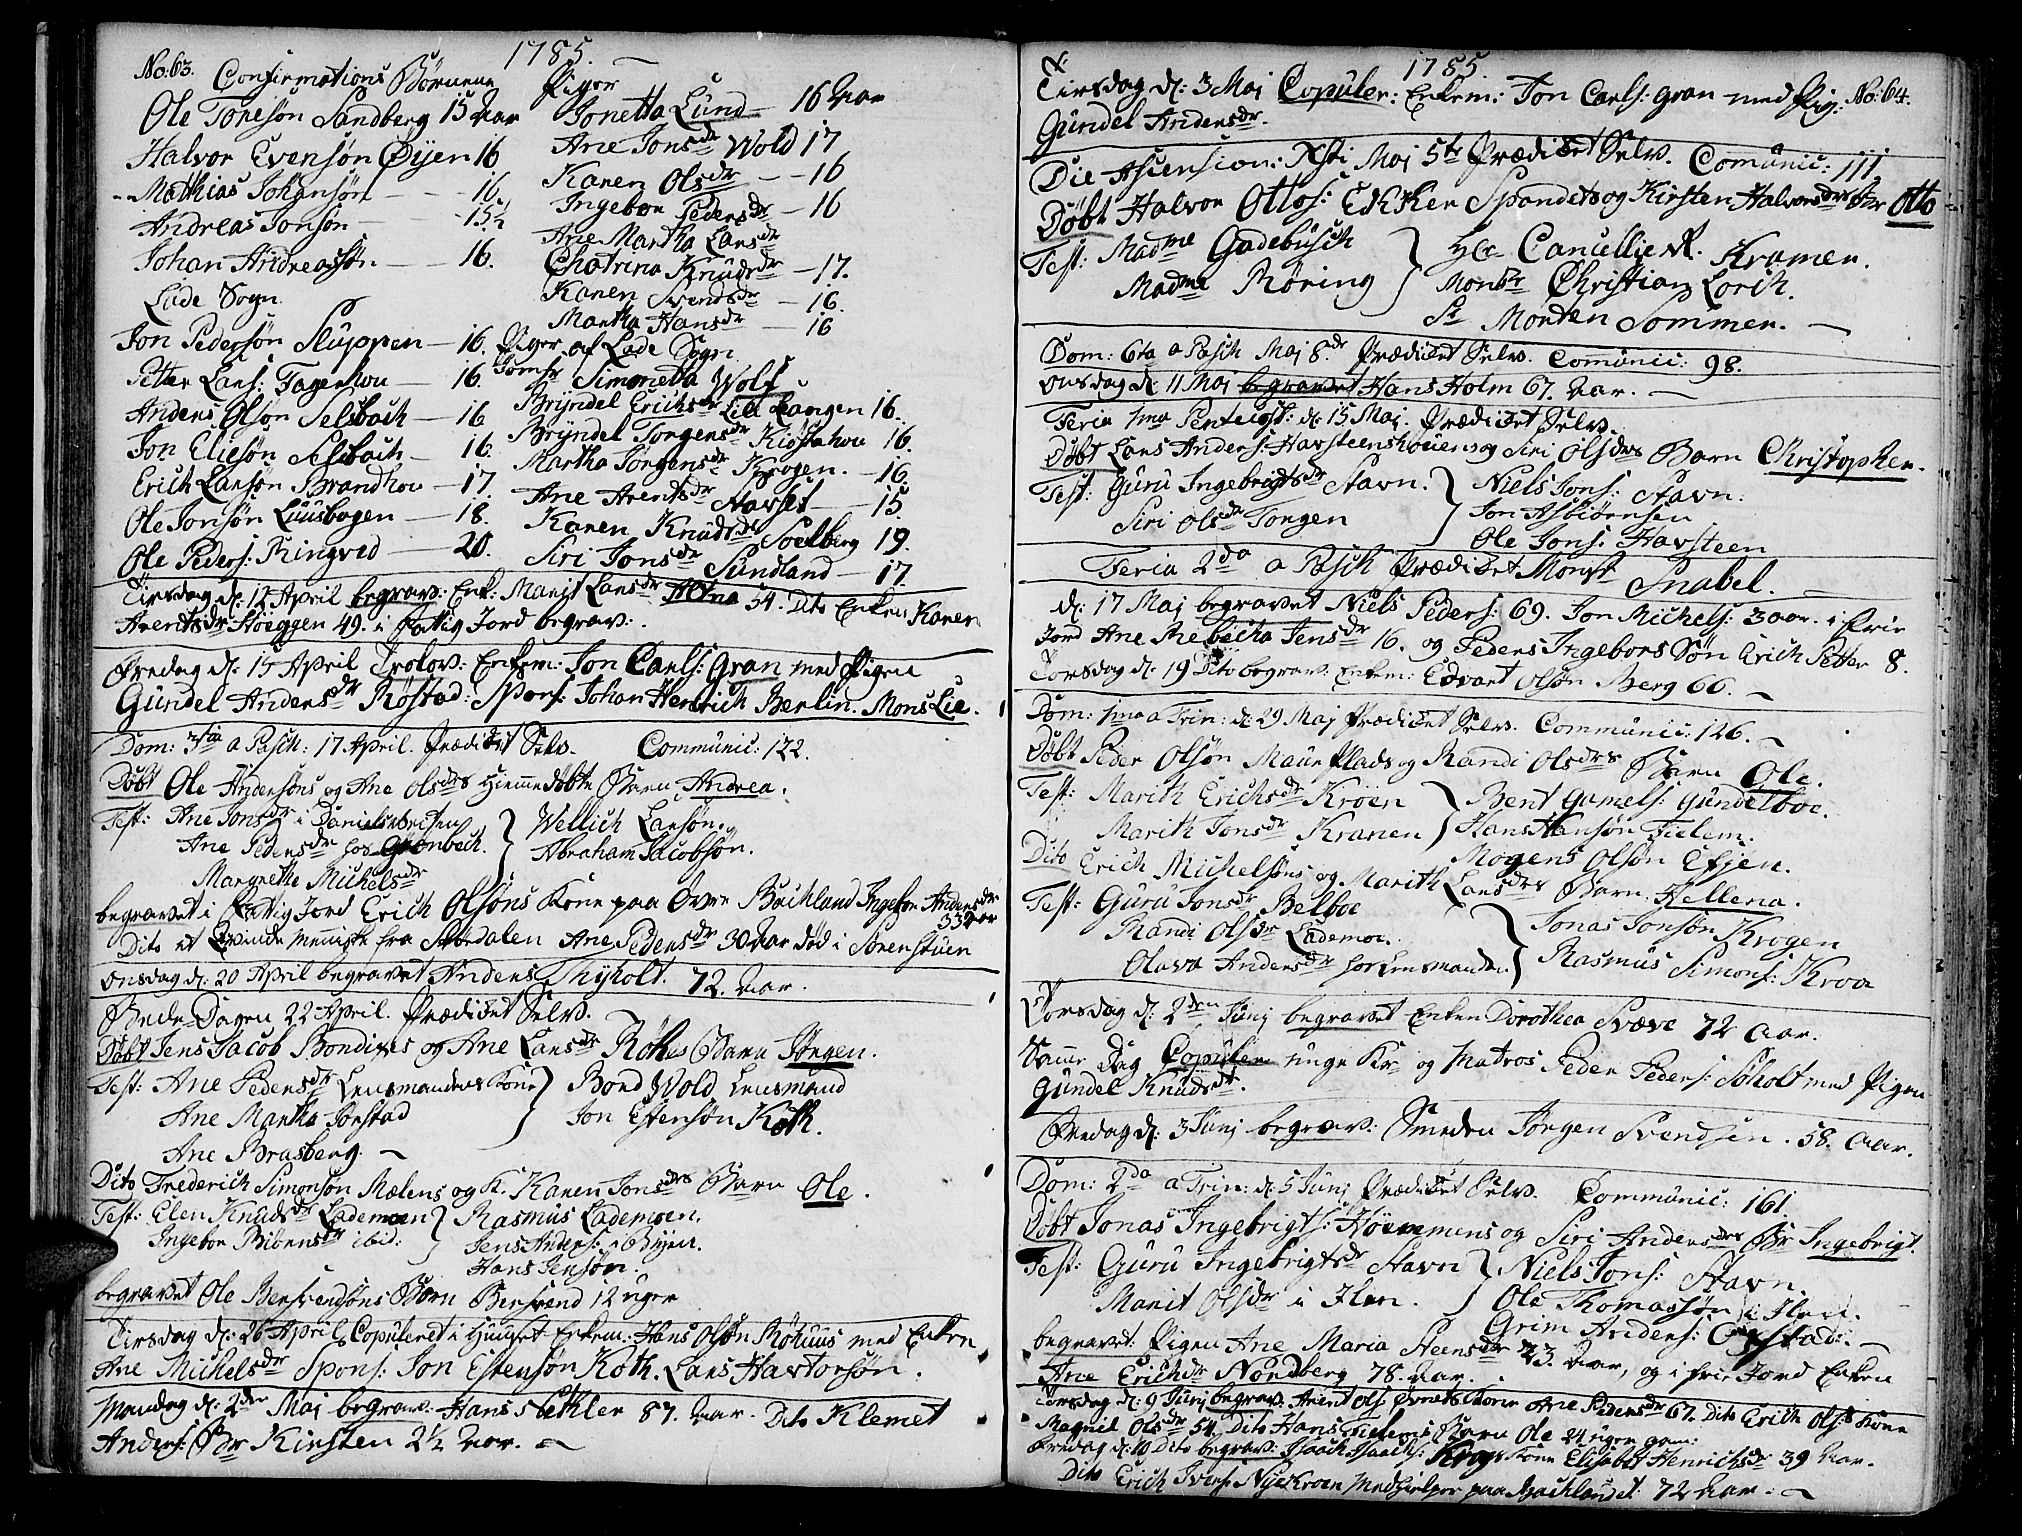 1785.
No: 63. Confirmations Børnene
Ole Toresøn Sandberg 15 Aar
Halvor Evensøn Øyen 16
Mathias Johansøn 16.
Andreas Jonsøn 15½
Johan Andreasøn 16.
Lade Sogn.
Jon Pedersøn Sluppen 16.
Petter Lars: Fagerhou 16.
Anders Olsøn Selsbach 16
Jon Eliesøn Selsbach 16.
Erich Larsøn Brandhou 17.
Ole Jonsøn Luusbagen 18.
Ole Peders: Ringved 20.
Piger
Jonetta Lund 16 Aar
Ane Jonsdr Wold 17
Karen Olsdr 16
Ingebor Pedersdr 16
Ane Martha Larsdr
Chatrina Knudsdr 17.
Karen Svendsdr 16.
Martha Hansdr 16
Piger af Lade Sogn.
Jomfr Simonetta Wolf
Bryndel Erichsdr Lille Langen 16.
Bryndel Jorgensdr Kiøstahou 16.
Martha Jørgensdr Krogen. 16.
Ane Arentsdr Havset 15.
Karen Knudsdr Soelberg 19.
Siri Jonsdr Sundland 17.
Tirsdag d: 12 April begrav: Enk: Marit Larsdr 54. Dito Enken Karen
Arentsdr Støeggen 49. i Fattig Jord begrav:
Fredag d: 15 April Trolov: Enkem: Jon Carls: Gran med Pigen
Gundel Andersdr Røstad: Spons: Johan Henrich Berlin. Mons Lie.
Dom: 3tia a Pasch: 17 April. Prædicet Selv. Communic: 122.
Døbt Ole Andersøns og Ane Olsdrs Hiemmedøbte Barn Andrea.
Test: Ane Jonsdr i Danielsveiten
Ane Pedersdr hos Grønbech.
Margrethe Michelsdr
Wellich Larsøn.
Abraham Jacobsøn.
begravet i Fattig Jord Erich Olsøns Kone paa Øvre Bachland Ingebor Andersdr
33 Aar
Dito et Qvinde Menniske fra Ane Pedersdr 30 Aar død i Sorenstuen
Onsdag d: 20 April begravet Anders Thyholt. 72. Aar.
Bede-Dagen 22 April. Prædicet Selv.
Døbt Jens Jacob Bondixes og Ane Larsdr Røhes Barn Jørgen.
Test: Ane Pedersdr Lensmandens Kone
Ane Martha Jørstad
Ane Brasberg.
Bord Wold Lensmand
Jon Estensøn Koth.
Dito Frederich Simonsøn Mælens og K. Karen Jonsdrs Barn Ole.
Test: Elen Knudsdr Lademoen
Ingebor Biørnsdr ibid:
Rasmus Lademoen.
Jens Anders: i Byen.
Hans Jensøn.
begravet Ole Bersvendsøns Barn Bersvend 12 uger
Tirsdag d: 26 April Copuleret i Huuset Enkem: Hans Olsøn Røhuus med Enken
Ane Michelsdr Spons: Jon Estensøn Koth. Lars Havtorsøn.
Mandag d: 2den Maj begrav: Hans Nekler 87. Aar. Dito Klemet
Anders: Br Kirsten 2½ Aar.
1785.
No: 64.
Tirsdag d: 3 Maj Copuler: Enkem: Jon Carls: Gran med Pig:
Gundel Andersdr.
Die Ascension: Xsti Maj 5te Prædicet Selv. Comunic: 111.
Døbt Halvor Ottos: Ekker Spandets og Kirsten Halvorsdrs Br Otto
Test: Madme Gadebusch
Madme Røring
Hr Cancellie R. Kramer.
Monsr Christian Lorch.
Sr Morten Sommer.
Dom: 6ta a Pasch Maj 8de Prædicet Selv. Comunic: 98.
Onsdag d: 11 Maj begravet Hans Holm 67. Aar.
Feria 1ma Pentecost: d: 15 Maj. Prædicet Selv.
Døbt Lars Anders: Havsteens og Siri Olsdrs Barn Christopher.
Test: Guru Ingebrigtsdr Stavn.
Siri Olsdr Tongen
Niels Jons: Stavn.
Jon Asbiørnsen
Ole Jons: Havsteen
Feria 2da a Pasch Prædicet Monsr Snabel.
d: 17 Maj begravet Niels Peders: 69. Jon Michels: 30 aar. i frie
Jord Ane Rebecka Jensdr 16. og Peders Ingebors Søn Erich Petter 8.
Torsdag d: 19 Dito begrav: Enkem: Edvart Olsøn Berg 66.
Dom: 1ma a Trin: d: 29 Maj Prædicet Selv. Communic: 126.
Døbt Peder Olsøn Maur Plads og Randi Olsdrs Barn Ole.
Test: Marith Erichsdr Krøen
Marith Jonsdr Kranen
Bent Gamels: Gundelboe.
Hans Hansøn Fielem.
Mogens Olsøn Efjen.
Dito Erich Michelsøns og Marith Larsdrs Barn Hellena.
Test: Guru Jonsdr Belboe
Randi Olsdr Lademoe.
Olava Andersdr hos Lensmanden.
Jonas Jonsøn Krogen
Rasmus Simons: Kroa
Torsdag d: 2den Junj begravet Enken Dorothea Svæve 72 Aar.
Samme Dag Copuler unge Kr og Matros Peder Peders: Søholt med Pigen
Gundel Knudsdr.
Fredag d: 3 Junj begrav: Smeden Jørgen Svendsen. 58. Aar.
Dom: 2da a Trin: d: 5 Junj Prædicet Selv. Communic: 161.
Døbt Jonas Ingebrigts: og Siri Andersdrs Br Ingebrigt.
Test: Guru Ingebrigtsdr Stavn
Marit Olsdr i Ilen.
Niels Jons: Stavn.
Ole Thomassøn i Ilen.
Grim Anders: Opstad:
begravet: Pigen Ane Maria Steensdr 23. Aar, og i frie Jord Enken
Ane Erichsdr Nordberg 78. Aar.
Torsdag d: 9 Junj begrav: Arent Ols: Kone Ane Pedersdr 67. Dito Erich Ols: Kone
Magnil Olsdr 54. Dito Hans Fielems Barn Ole 24 uger gam:
Fredag d: 10 Dito begrav: Isach Isachs: Krogs Kone Elisabet Henrichsdr 39 Aar.
Dito Erich Ivers: Nye Kroen Medhielper paa Bachlandet 72 Aar.